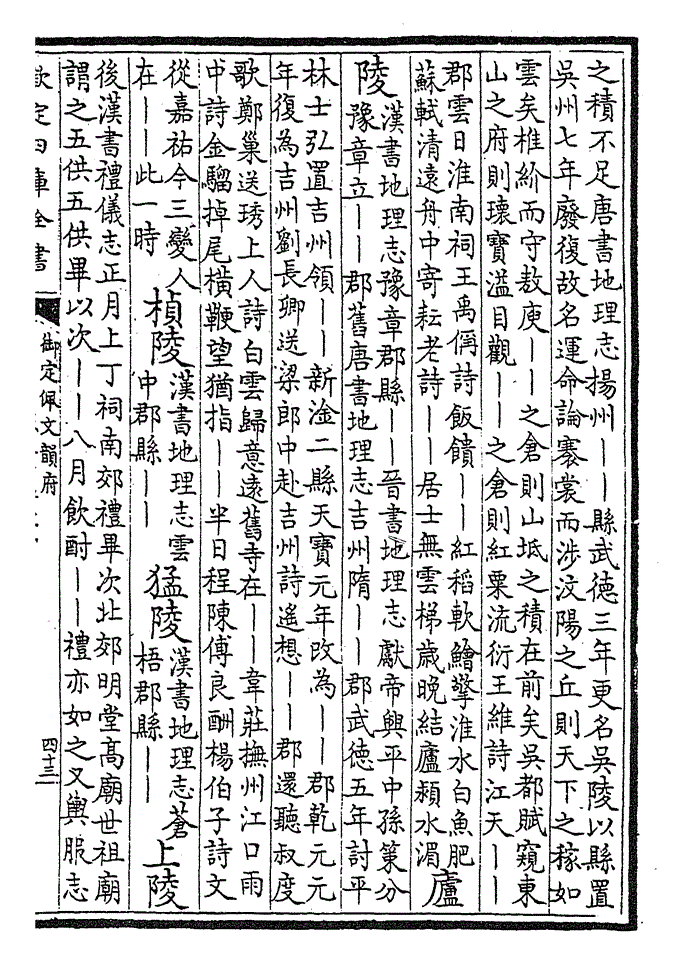 之積不足唐書地理志揚州——縣武德三年更名吳陵以縣置
吳州七年廢復故名運命論褰裳而涉汶陽之丘則天下之稼如
雲矣椎紒而守敖庾——之倉則山坻之積在前矣吳都賦窺東
山之府則瓌寶溢目觀——之倉則紅粟流衍王維詩江天——
郡雲日淮南祠王禹偁詩飯饙——紅稻軟鱠擎淮水白魚肥
蘇軾清遠舟中寄耘老詩——居士無雲梯歲晚結廬潁水湄
廬
陵
漢書地理志豫章郡縣——晉書地理志獻帝興平中孫策分
豫章立——郡舊唐書地理志吉州隋——郡武德五年討平
林士弘置吉州領——新淦二縣天寶元年改為——郡乾元元
年復為吉州劉長卿送梁郎中赴吉州詩遙想——郡還聽叔度
歌鄭巢送琇上人詩白雲歸意遠舊寺在——韋莊撫州江口雨
中詩金騮掉尾橫鞭望猶指——半日程陳傅良酬楊伯子詩文
從嘉祐今三變人
在——此一時
楨陵
漢書地理志雲
中郡縣——
猛陵
漢書地理志蒼
梧郡縣——
上陵
後漢書禮儀志正月上丁祠南郊禮畢次北郊明堂高廟世祖廟
謂之五供五供畢以次——八月飲酎——禮亦如之又輿服志
欽定四庫全書
御定佩文韻府
四十三